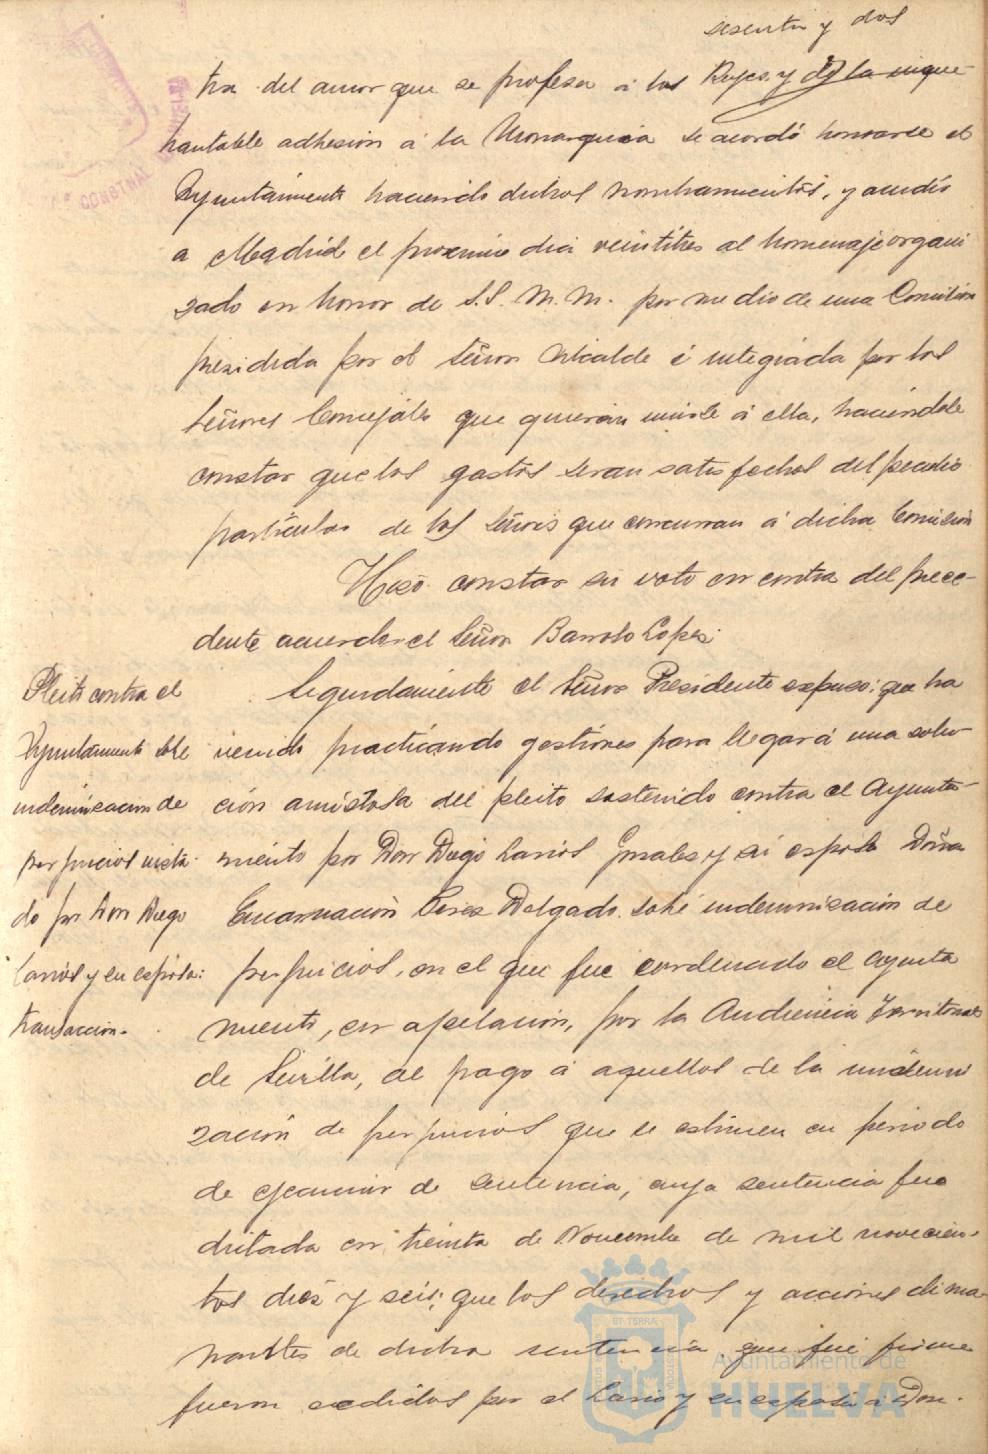 sesenta y dos
tra del amor que se profesa á los Reyes y de la inque-
brantable adhesion á la Monarquia se acordó honrarse el
Ayuntamiento haciendo dichos nombramientos, y acudir
a Madrid el proximo dia veintitres al homenaje organi
zado en honor de S.S. M.M. por medio de una Comision
presidida por el Señor Alcalde é integrada por los
Señores Concejales que quieran unirse á ella, haciendose
constar que los gastos seran satisfechos del peculio
particular de los Señores que concurran á dicha Comision
Hizo constar su voto en contra del prece-
dente acuerdo el Señor Barroso Lopez.
Pleito contra el
Ayuntamiento sobre
indemnizacion de
perjuicios insta-
do por Don Diego
Larios y su esposa:
transaccion.
Seguidamente el Señor Presidente expuso: que ha
venido practicando gestiones para llegar á una solu-
ción amistosa del pleito sostenido contra el Ayunta-
miento por Don Diego Larios Gonzalez y su esposa Doña
Encarnación Perez Delgado sobre indemnización de
perjuicios, en el que fue condenado el Ayunta
miento, en apelacion, por la Audiencia Territorial
de Sevilla, al pago á aquellos de la indemni
zación de perjuicios que se estimen en periodo
de ejecucion de sentencia, cuya sentencia fue
dictada en treinta de Noviembre de mil novecien-
tos diez y seis; que los derechos y acciones dima-
nantes de dicha sentencia que fué firme
fueron cedidos por el Larios y su esposa á Don
CONSTNAL
ET TERRA
Ayuntamiento de
HUELVA